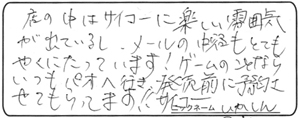 店の中はサイコーに楽しい雰囲気
が出ているし、メールの内容もとても
やくにたっています!ゲームのことなら
いつも へ行き、発売前に予約さ
せてもらってます!サイコー
ニックネーム